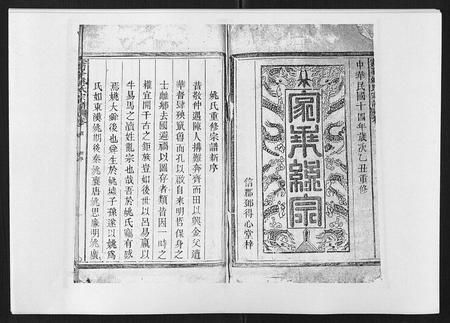 中華民國十四年歲次乙丑重修
家乘綿宗
信郡鄧得心堂梓
姚氏重修宗譜新序
昔敬仲遇陳人搆難奔齊而田以興金父遭
華督肆殃竄魯而孔以啟自來明哲保身之
士離鄉去國避禍以圖存者類皆因一時之
權宜開千古之鉅族豈如後世以呂易嬴以
牛易馬之瀆姓亂宗也哉吾於姚氏竊有感
焉姚大舜後也舜生於姚墟子孫遂以姚為
氏如東漢姚期後秦姚襄唐姚思廉明姚廣